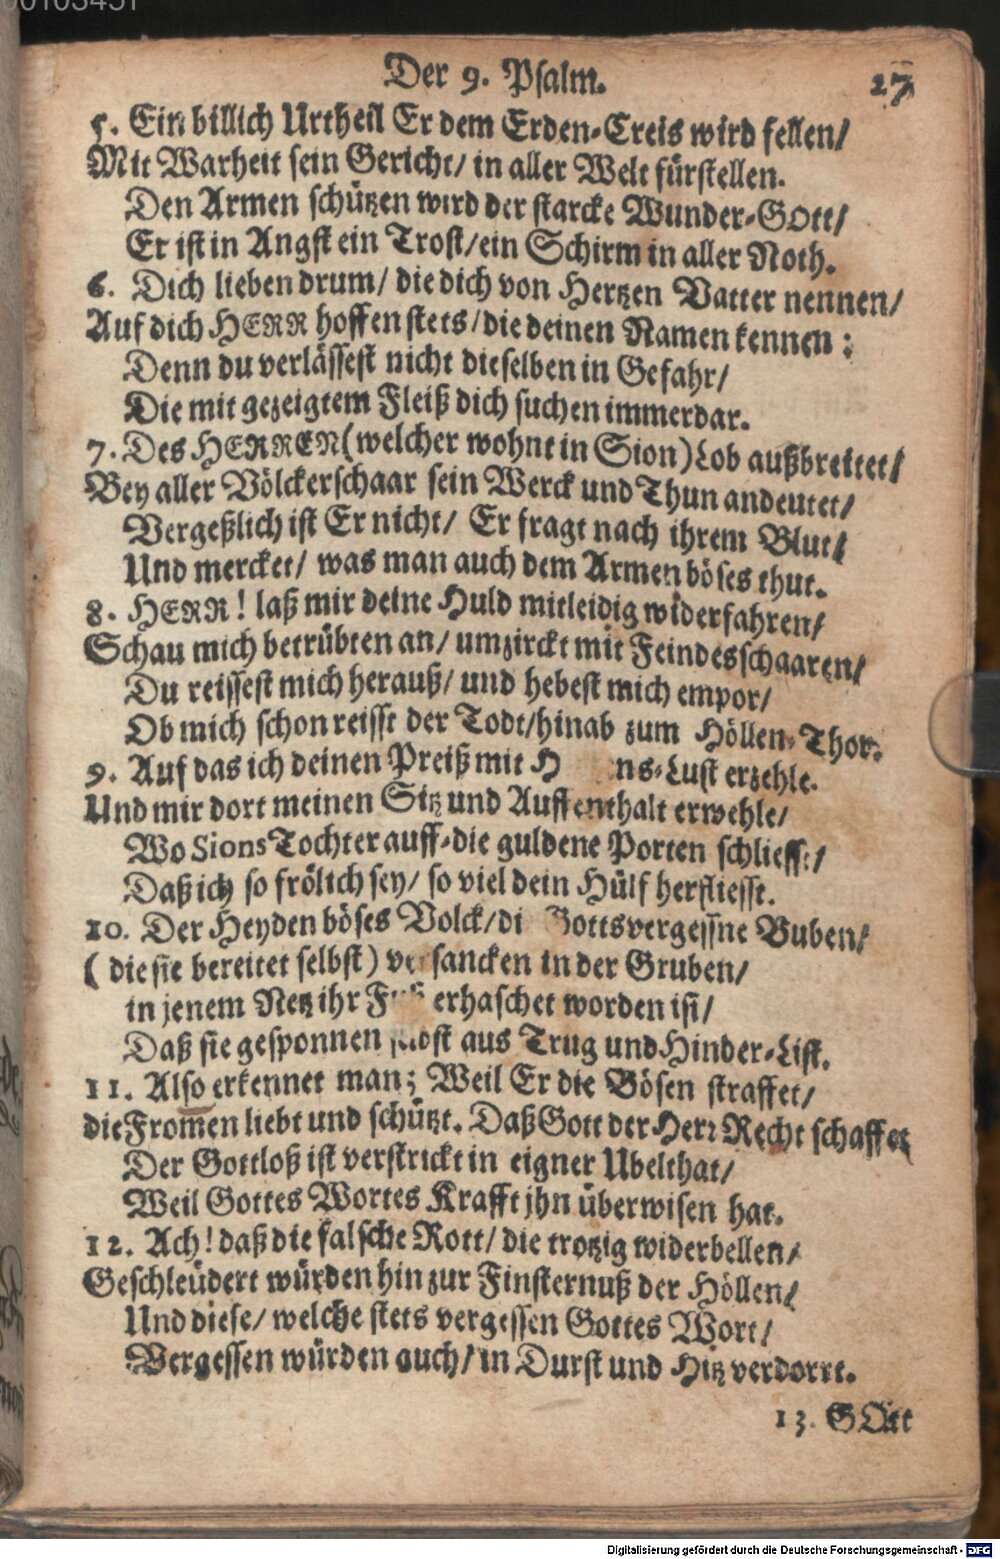 00103451
Der 9. Psalm. 27
5. Ein billich Urtheil Er dem Erden-Creis wird fellen/
Mit Warheit sein Gericht/ in aller Welt fürstellen.
Den Armen schützen wird der starcke Wunder-GOtt/
Er ist in Angst ein Trost/ ein Schirm in aller Noth.
6. Dich lieben drum/ die dich von Hertzen Vatter nennen/
Auf dich HERR hoffen stets/ die deinen Namen kennen:
Denn du verlässest nicht dieselben in Gefahr/
Die mit gezeigtem Fleiß dich suchen immerdar.
7. Des HERREN (welcher wohnt in Sion) Lob außbreitet/
Bey aller Völckerschaar sein Werck und Thun andeutet/
Vergeßlich ist Er nicht/ Er fragt nach ihrem Blut/
Und mercket/ was man auch dem Armen böses thut.
8. HERR! laß mir deine Huld mitleidig widerfahren/
Schau mich betrübten an/ umzirckt mit Feindesschaaren/
Du reissest mich herauß/ und hebest mich empor/
Ob mich schon reisst der Todt/ hinab zum Höllen-Thor.
9. Auf das ich deinen Preiß mit H ns-Lust erzehle.
Und mir dort meinen Sitz und Auffenthalt erwehle/
Wo Sions Tochter auff-die guldene Porten schliesst/
Daß ich so frölich sey/ so viel dein Hülf herfliesst.
10. Der Heyden böses Volck/ di Gottsvergessne Buben/
(die sie bereitet selbst) versancken in der Gruben/
in jenem Netz ihr Fuß erhaschet worden ist/
Daß sie gesponnen selbst aus Trug und Hinder-List.
11. Also erkennet man; Weil Er die Bösen straffet/
die From̅en liebt und schützt. Daß Gott der Herr Recht schaffet
Der Gottloß ist verstrickt in eigner Ubelthat/
Weil Gottes Wortes Krafft jhn überwisen hat.
12. Ach! daß die falsche Rott/ die trotzig widerbellen/
Geschleüdert würden hin zur Finsternuß der Höllen/
Und diese/ welche stets vergessen Gottes Wort/
Vergessen würden auch/ in Durst und Hitz verdorrt.
13. GOtt
Digitalisierung gefördert durch die Deutsche Forschungsgemeinschaft - DFG